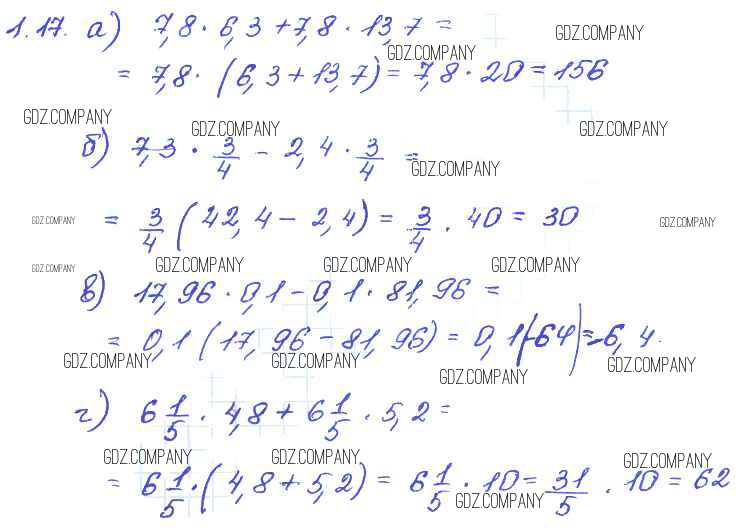 1.17. а) 7,8 · 6,3 + 7,8 · 13,7 =
GDZ.COMPANY
GDZ.COMPANY
= 7,8 · (6,3 + 13,7) = 7,8 · 20 = 156
GDZ.COMPANY
GDZ.COMPANY
GDZ.COMPANY
б) 7,3 · 3/4 - 2,4 · 3/4 =
GDZ.COMPANY
= 3/4 (42,4 - 2,4) = 3/4 · 40 = 30
GDZ.COMPANY
GDZ.COMPANY
GDZ.COMPANY
GDZ.COMPANY
GDZ.COMPANY
GDZ.COMPANY
в) 17,96 · 0,1 - 0,1 · 81,96 =
= 0,1 (17,96 - 81,96) = 0,1(-64) = -6,4.
GDZ.COMPANY
GDZ.COMPANY
GDZ.COMPANY
GDZ.COMPANY
г) 6 1/5 · 4,8 + 6 1/5 · 5,2 =
GDZ.COMPANY
GDZ.COMPANY
GDZ.COMPANY
= 6 1/5 · (4,8 + 5,2) = 6 1/5 · 10 = 31/5 · 10 = 62
GDZ.COMPANY